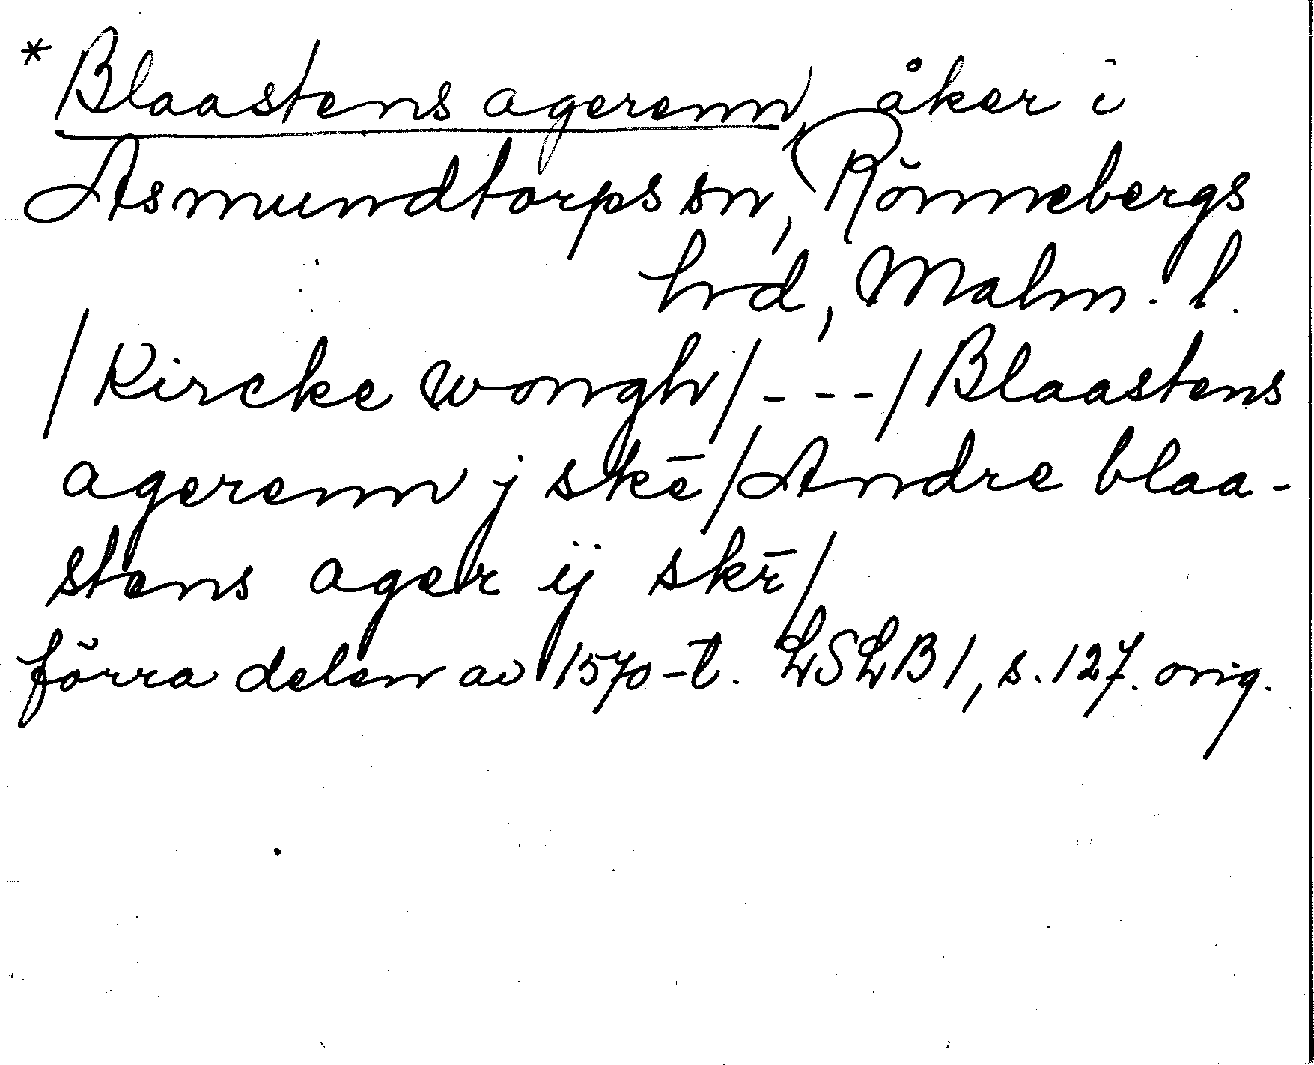 * Blaastens agerenn, åker i
Asmundtorps sn, Rönnebergs
hd, Malm. l.
/Kircke wongh/---/Blaastens
agerenn j skē/Andre blaa-
stens ager ij skē/
förra delen av 1570-t. LSLB 1, s. 127. orig.